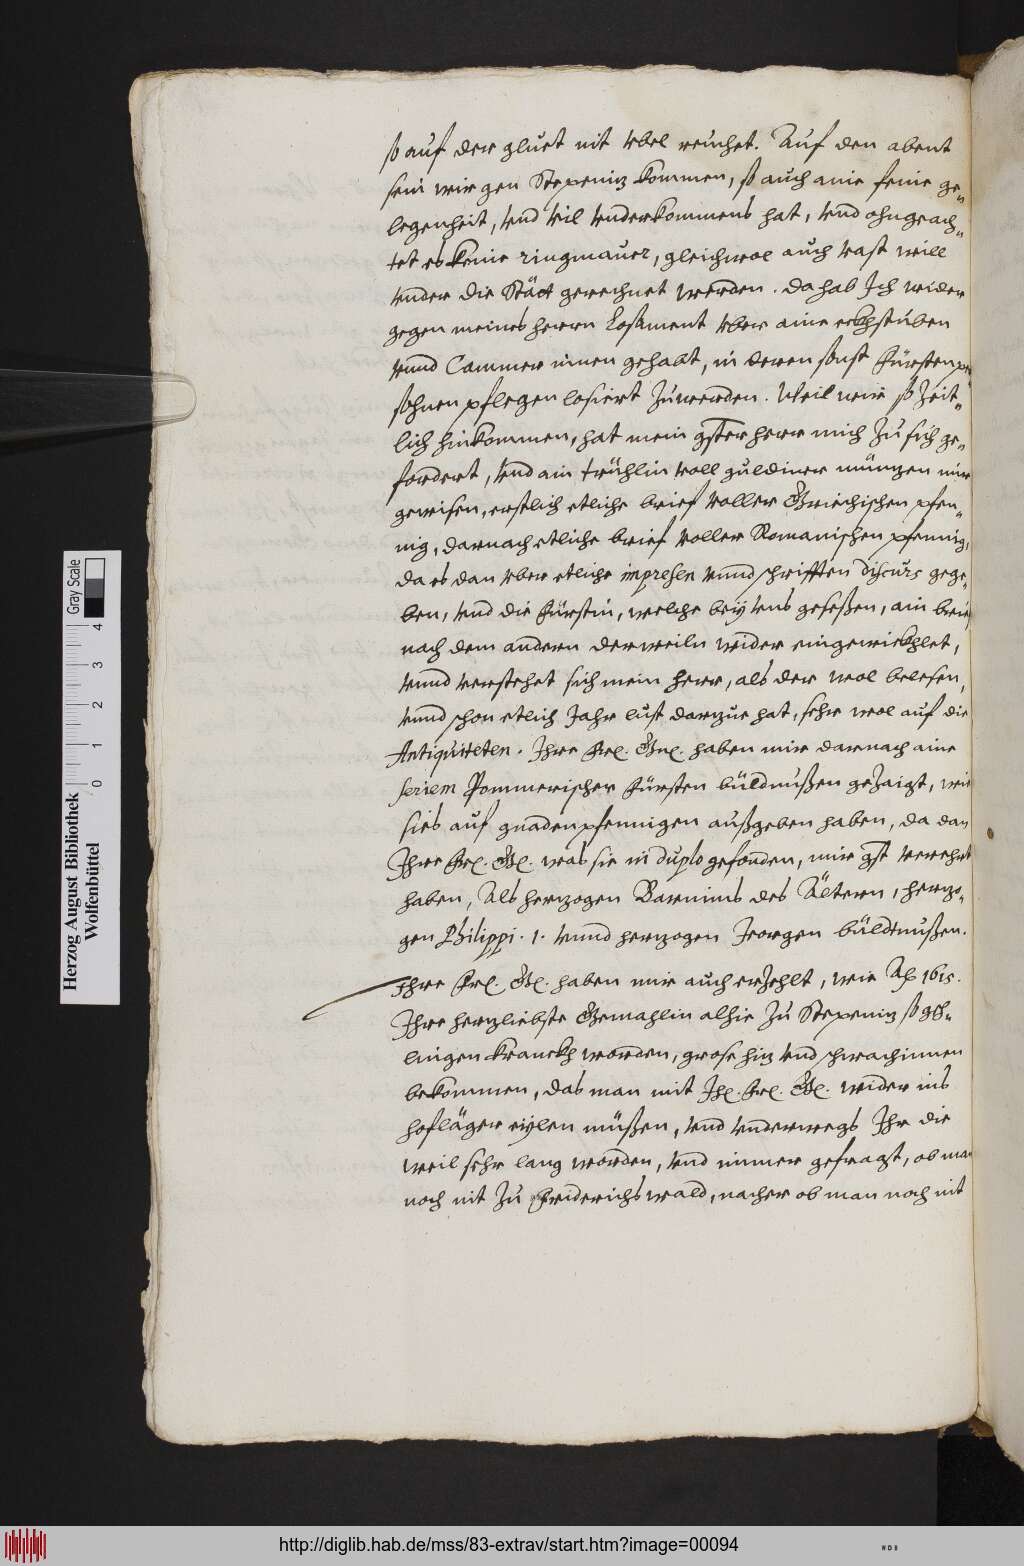 so auf der gluet nit vbel reuchet. Auf den abent
sein wir gen Stepeniz kommen, so auch aine feine ge„
legenheit, vnd vil vnderkommens hat, vnd ohngeach„
tet es keine ringmauer, gleichwol auch vast will
vnder die Stätt gerechnet werden. da hab Ich wider
gegen meines herrn Losament vber aine eckhstuben
vnnd Cammer innen gehabt, in deren sonst Fürsten per
sohnen pflegen losiert zuwerden. Weil wir so zeit„
lich hinkommen, hat mein gster herr mich zu sich ge„
fordert, vnd ain trühlin voll guldiner müntzen mir
gewisen, erstlich etliche brief voller Griechischen pfen„
nig, darnach etliche brief voller Romanischen pfennig,
da es dan vber etliche impresen vnnd schrifften discurs gege„
ben, vnd die Fürstin, welche beÿ vns gesessen, ain brief
nach dem andern derweiln wider eingewickhlet,
vnnd verstehet sich mein herr, als der wol belesen,
vnnd schon etlich Jahr lust darzue hat, sehr wol auf die
Antiquiteten. Ihre Frl. Gn. haben mir darnach aine
seriem Pommerischer Fürsten büldnußen gezaigt, wie
sies auf gnadenpfennigen außgeben haben, da dan
Ihre Frl. G. was sie in duplo gefonden, mir gst verehrt
haben, Als herzogen Barnims des Ältern, herzo„
gen Philippi. 1. vnnd herzogen Jeorgen büldtnußen.
Ihre Frl. G. haben mir auch erzehlt, wie Ao 1615.
Ihre herzliebste Gemahlin alhie zu Stepeniz so gäh„
lingen kranckh worden, grose hiz vnd schwachinnen
bekommen, das man mit Ih. Frl. G. wider ins
hofläger eÿlen müßen, vnd vnderwegs Ihr die
weil sehr lang worden, vnd immer gefragt, ob man
noch nit zu Friderichswald, nacher ob man noch nit
Herzog August Bibliothek
Wolfenbüttel
0 1 2 3 4
Gray Scale
http://diglib.hab.de/mss/83-extrav/start.htm?image=00094